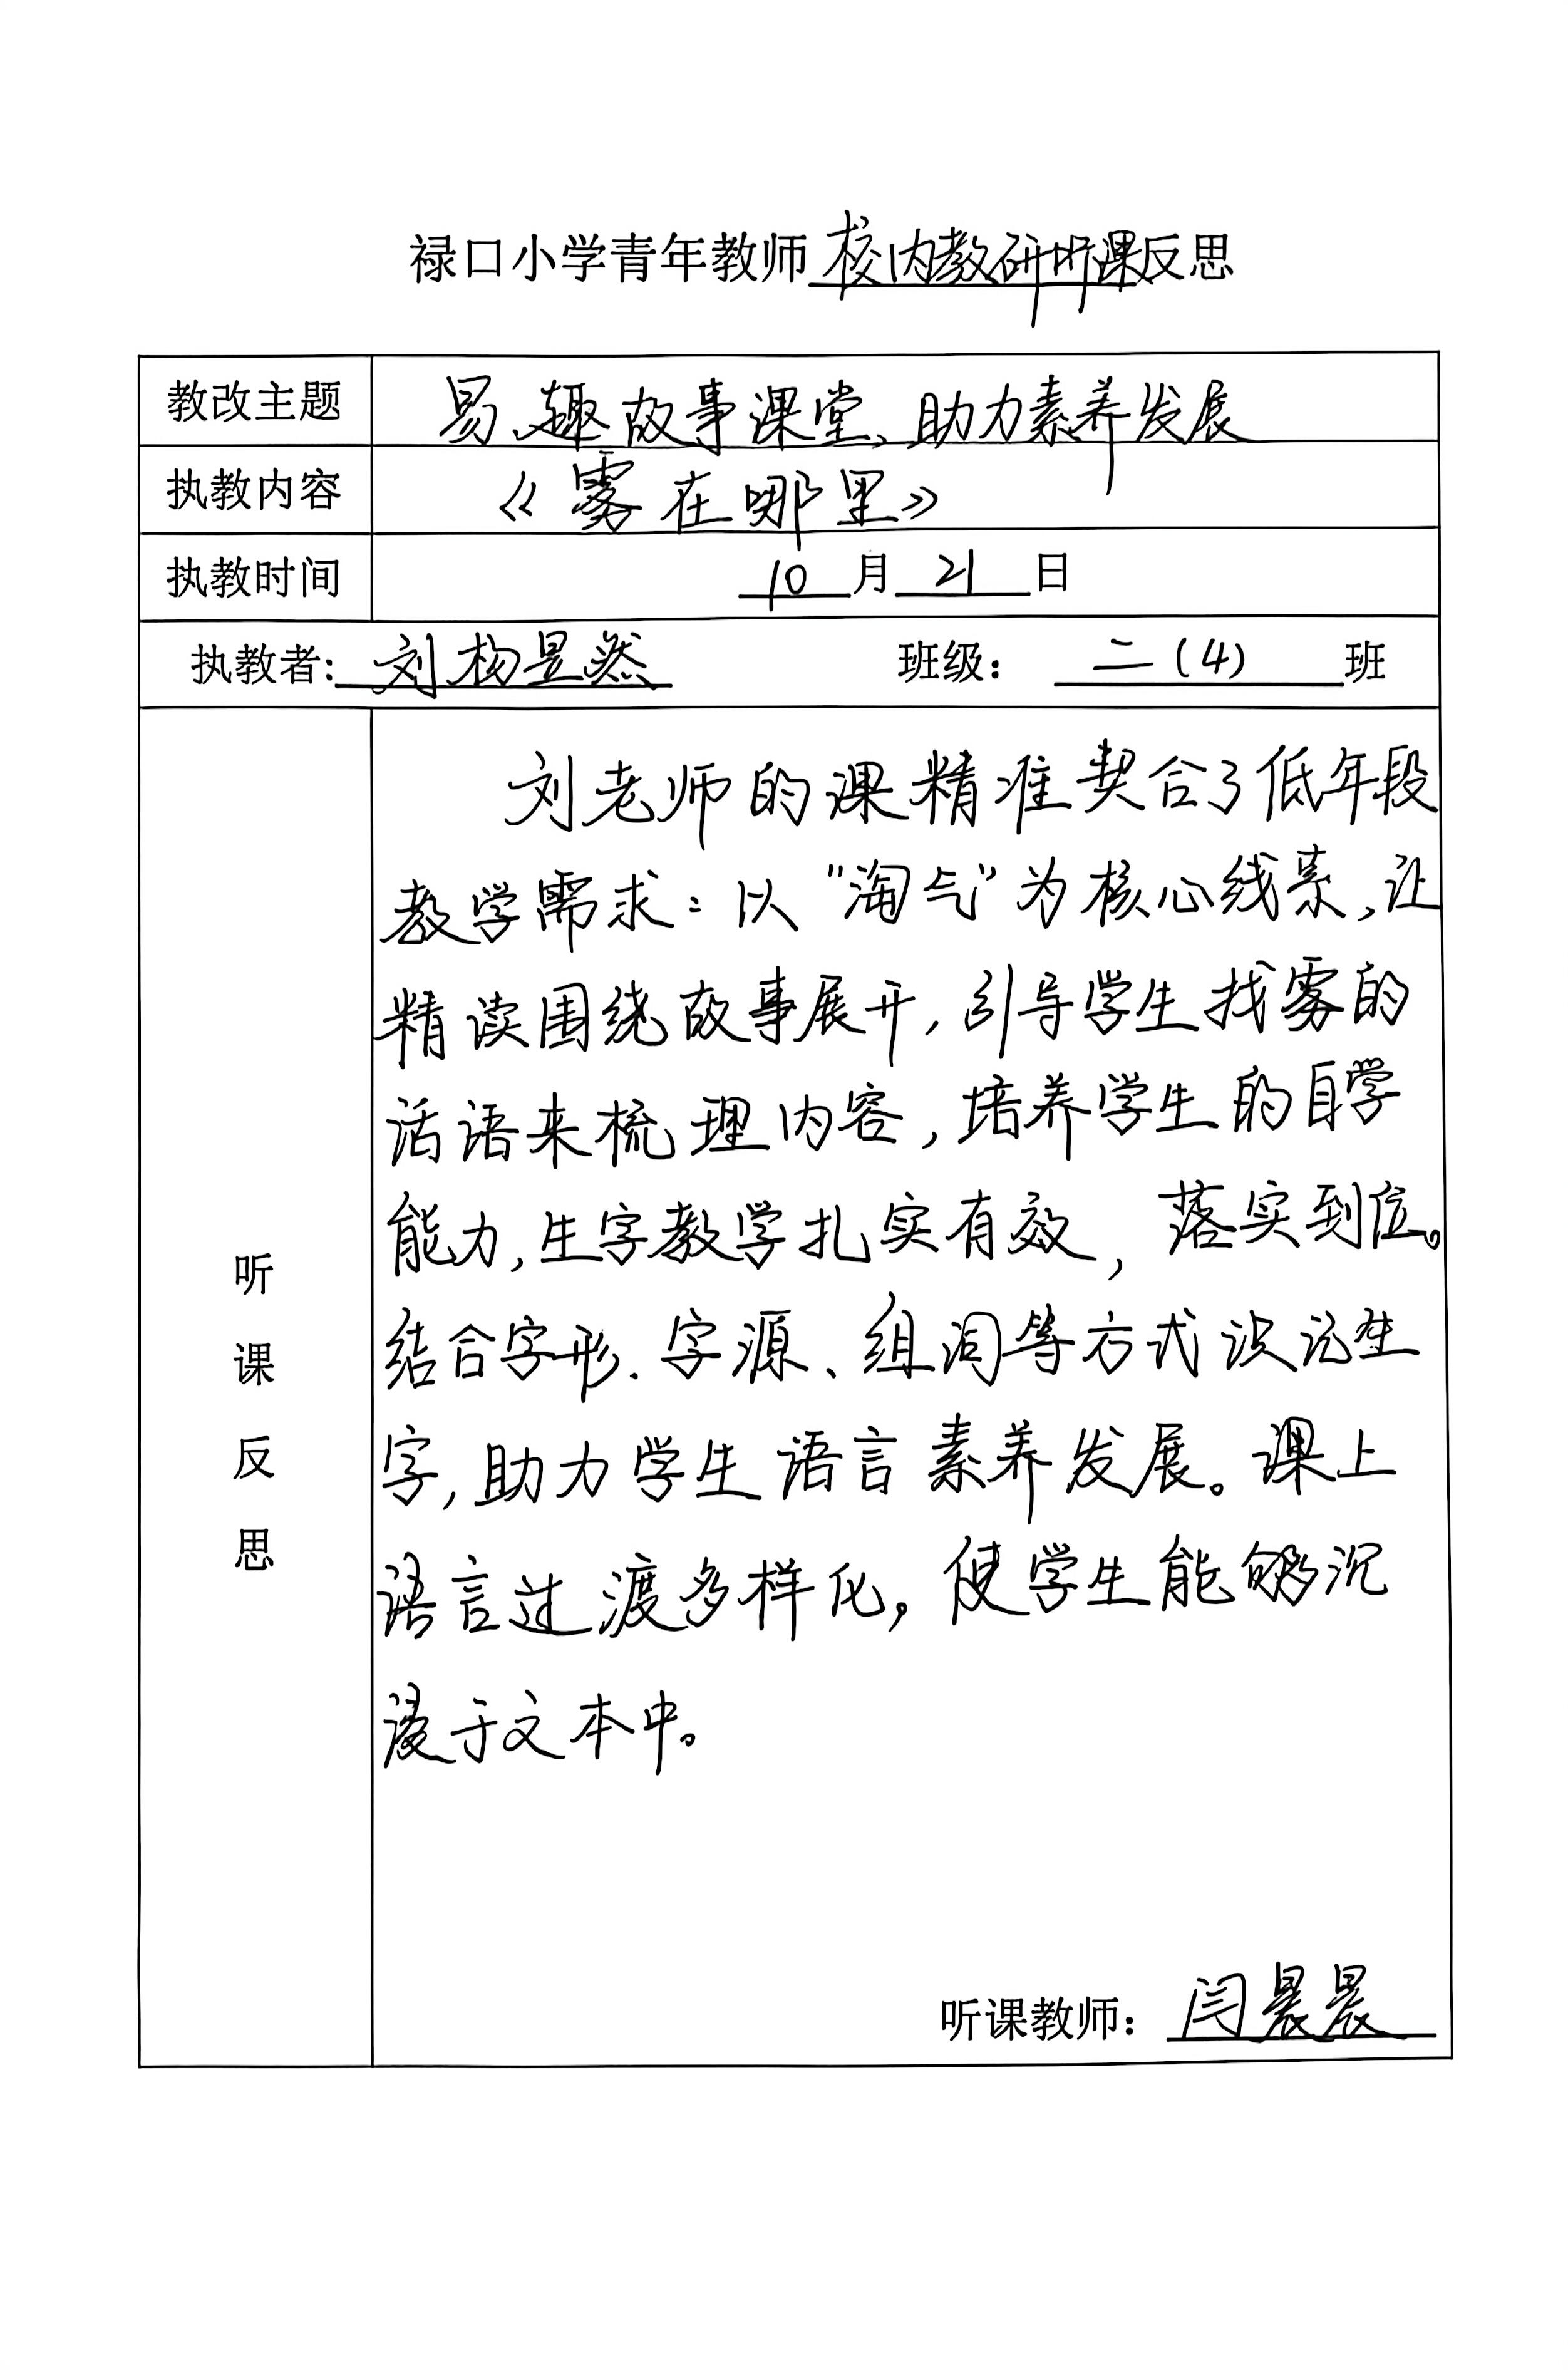 禄口小学青年教师校内教研听课反思
教改主题 易、趣故事课堂,助力素养发展
执教内容 《雾在哪里》
执教时间 10月21日
执教者:刘杨昱然 班级:二(4)班
听课反思
刘老师的课精准契合了低年段
教学需求:以“淘气”为核心线索,让
精读围绕故事展开,引导学生找雾的
话语来梳理内容,培养学生的自学
能力,生字教学扎实有效,落实到位。
结合字形、字源、组词等方式识记生
字,助力学生语言素养发展。课上
语言过渡多样化,使学生能够沉
浸于文本中。
听课教师:闫晨晨